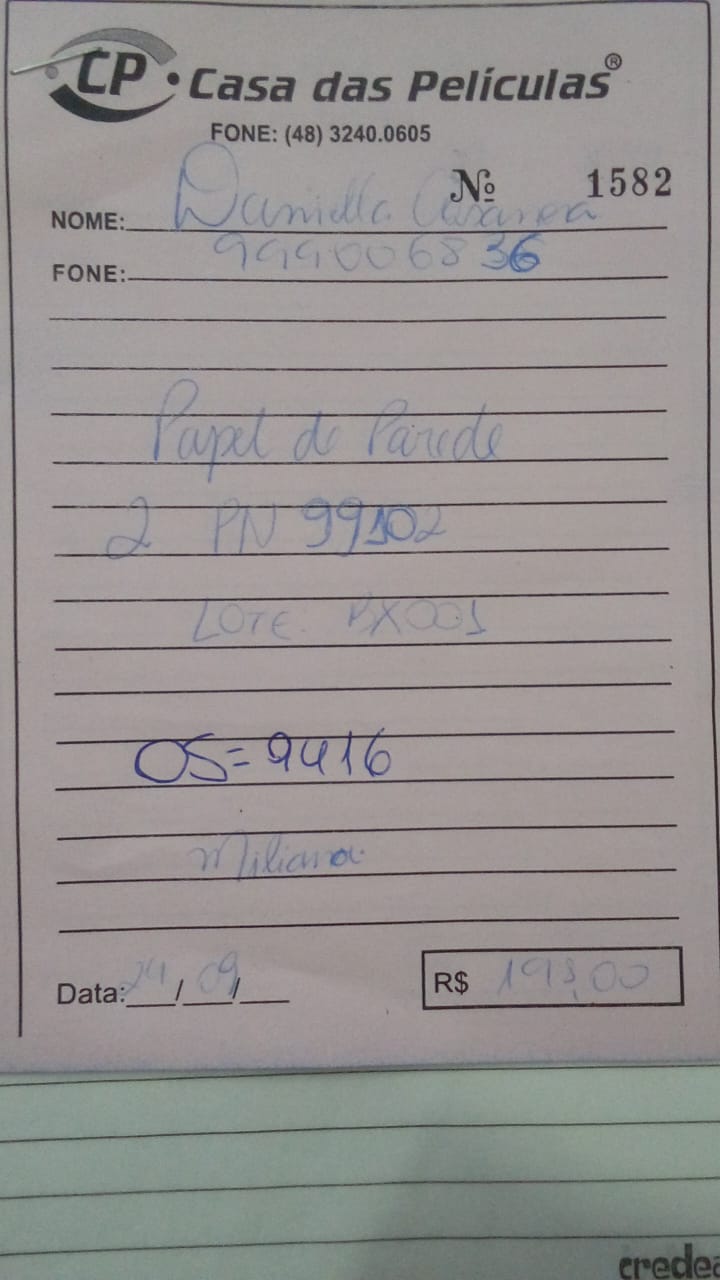 CP • Casa das Películas®
FONE: (48) 3240.0605
Nº 1582
NOME: Daniella
FONE: 999006836
Papel de Parede
2 PN 99102
LOTE. BX001
OS=9416
Data: 24/09/
R$ 198,00
credea